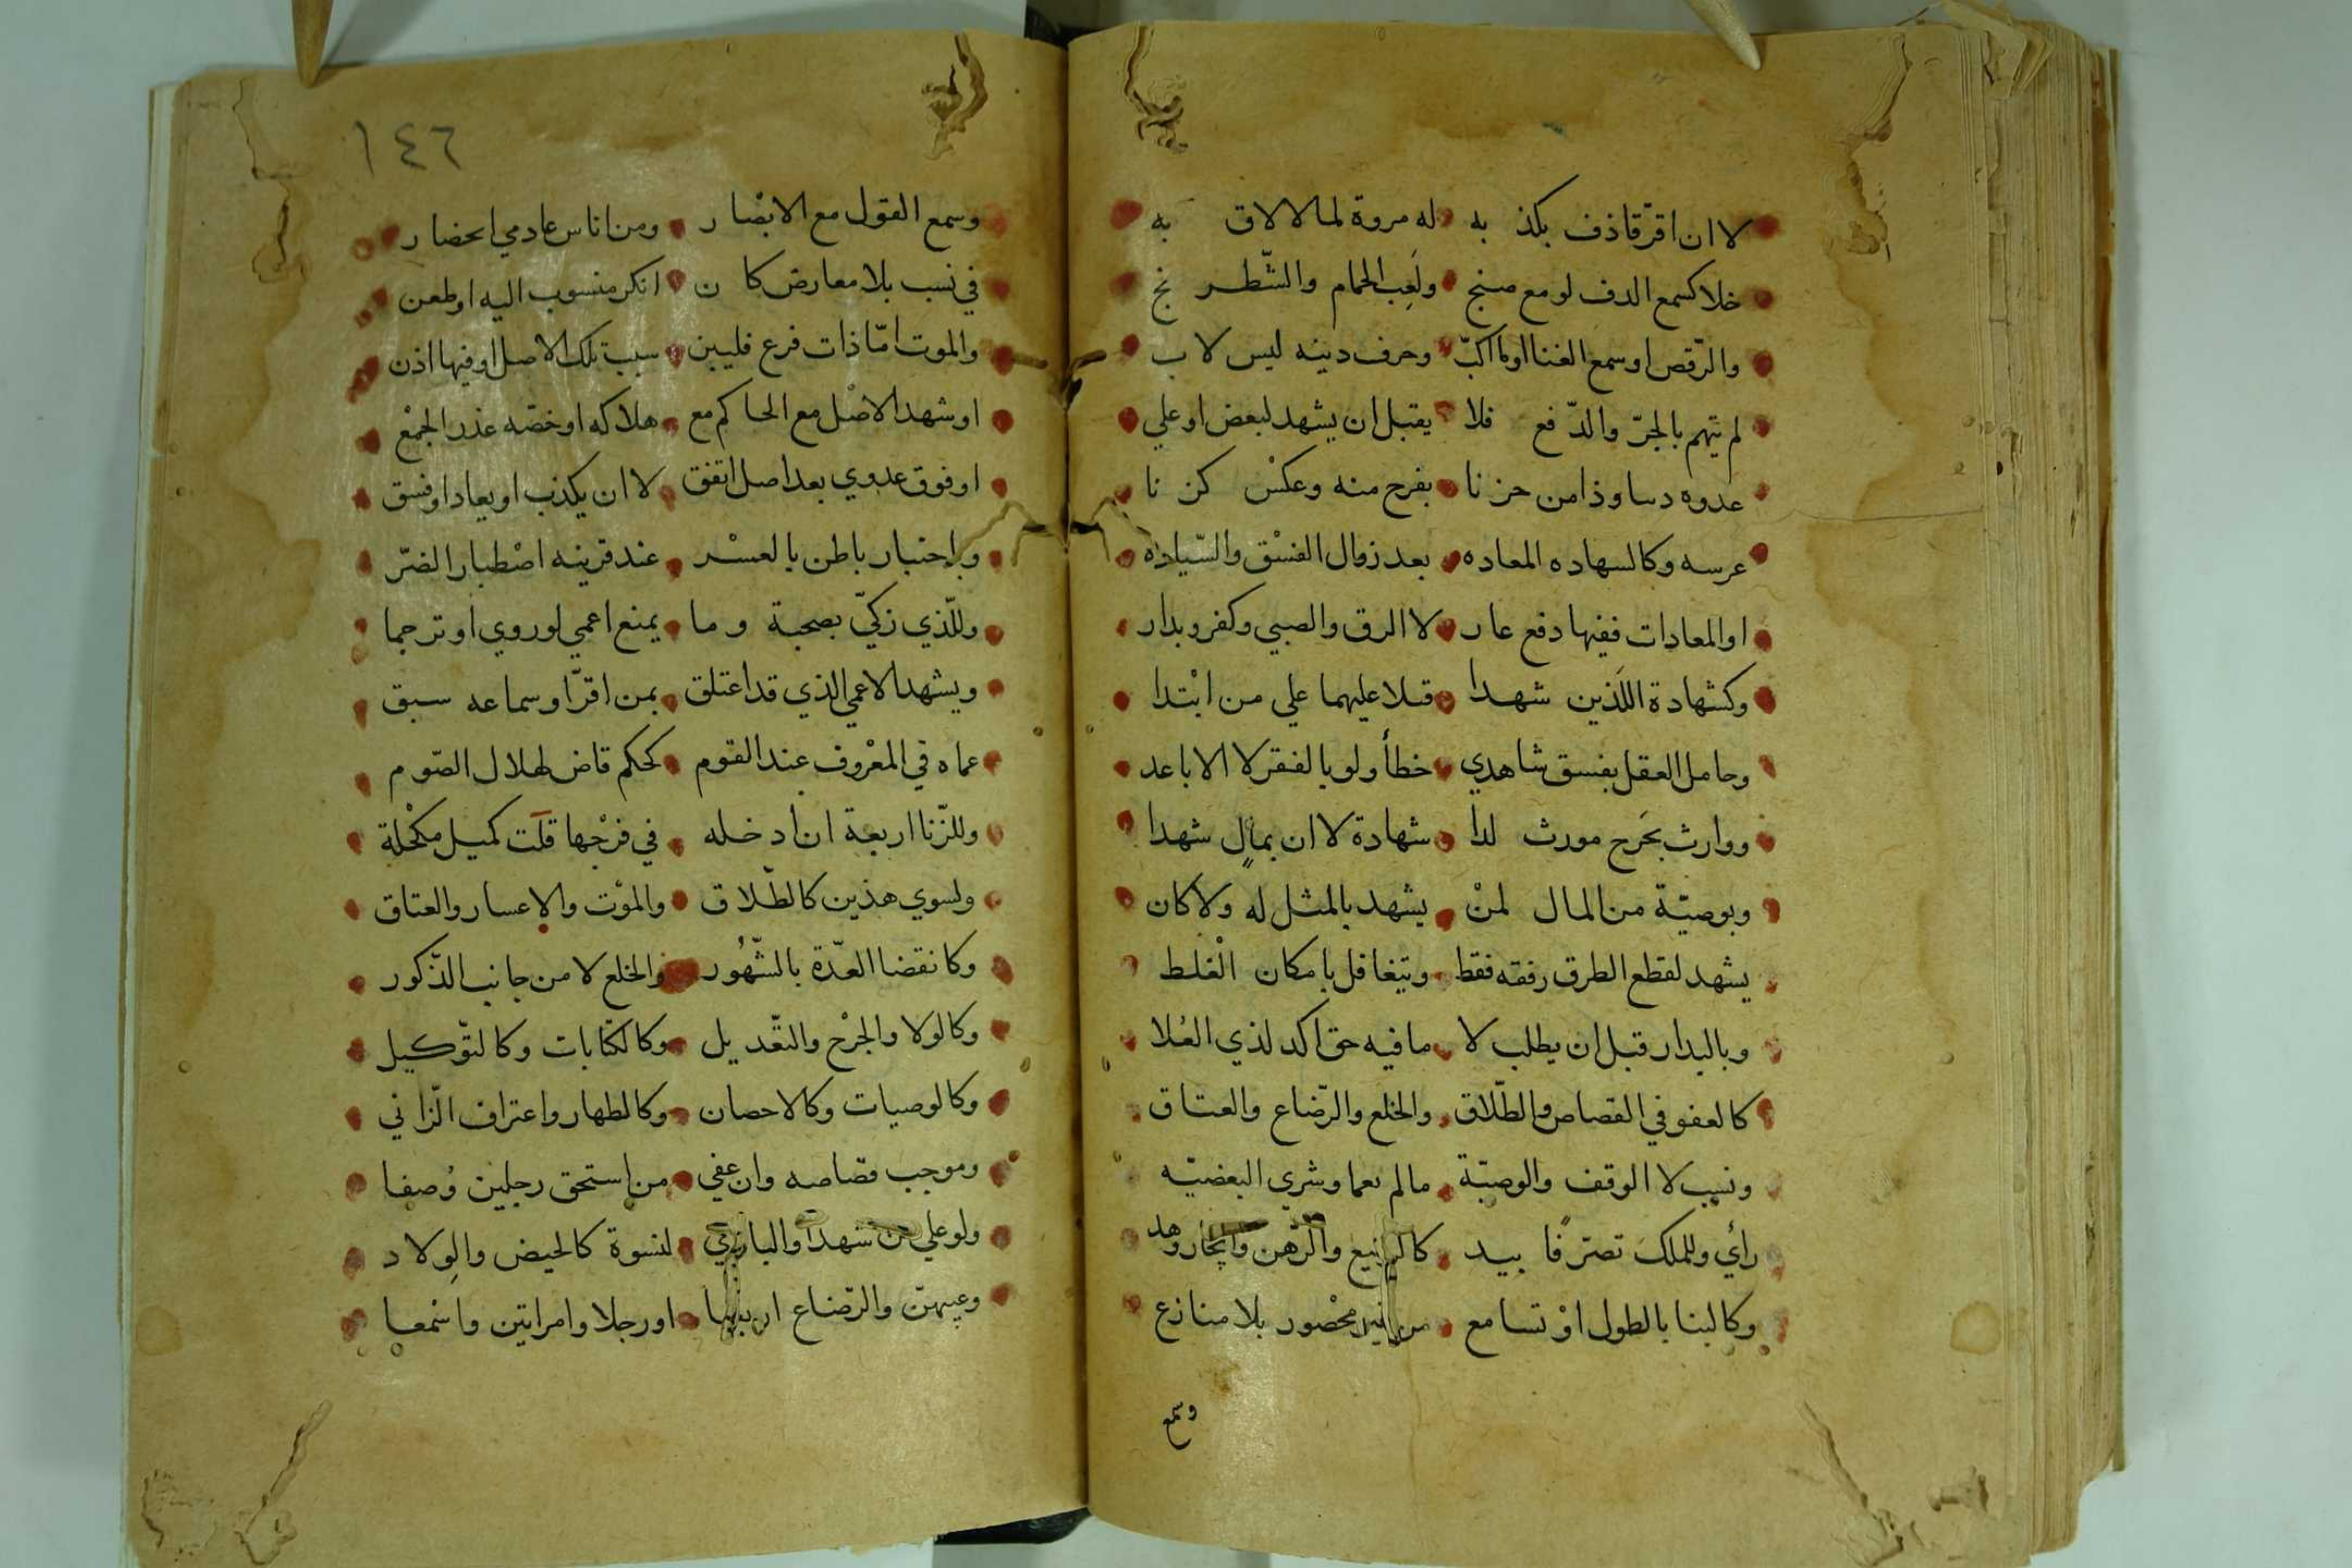 لا ان اقرّ قاذف بكذ به له مروة لما لا لاق به
خلا كسمع الدف لو مع صنج ولَعِب الحمام والشّطر نج
والرّقص او سمع الغنا او ما اكبّ وحرف دينه ليس لا ب
لم يتهم بالجرّ والدّ فع فلا يقبل ان يشهد لبعض او علي
عدوه دسا وذا من حز نا بفرح منه وعكسْ كن نا
عرسه وكالسهاده المعاده بعد زوال الفسْق والسّياده
او المعادات ففيها دفع عا ر لا الرق والصبي وكفر وبدار
وكشهادة اللَذين شهدا قتلا عليهما علي من ابْتدا
وحامل العقل بفسق شاهدي خطأ ولو بالفقر لا الاباعد
ووارث بجَرح مورث لدا شهادة لا ان بمالٍ شهدا
وبوصيّة من المال لمنْ يشهد بالمثل له ولا كان
يشهد لقطع الطرق رفقه فقط ويتغافل بامكان الْغلط
وبالبدار قبل ان يطلب لا ما فيه حق اكد لذي العُلا
كالعفو في القصاص والطّلاق والخلع والرّضاع والعتاق
ونسب لا الوقف والوصيّة مالم يعما وشري البعضيّه
رأي وللملك تصرّفًا بيد كالبيع والرّهن وايجار وهد
وكالبنا بالطول اوْ تسامع من محْصور بلا منازع
وسمع
١٤٦
وسمع القول مع الابْصا ر ومن اناس عادمي احضار
في نسب بلا معارض كا ن انكر منسوب اليه او طعن
والموت امّا ذات فرع فليبن سبب تلك الاصل او فيها اذن
او شهد الاصْل مع الحاكم مع هلاكه او خصّه عذر الجمْع
او فوق عدوي بعد اصل اتفق لا ان يكذب او يعاد او فسق
وباختبار باطن بالعسْر عند قرينه اصْطبار الضرّ
وللّذي زكيّ بصحبة وما يمنع اعمي لو روي او ترجما
ويشهد الاعمي الذي قد اعتلق بمن اقرّ او سماعه سبق
عماه في المعْروف عند القوم كحكم قاض لهلال الصّوم
وللزّنا اربعة ان ادخله في فرْجها قلَت كميل مكحْلة
ولسوي هذين كالطّلاق والموْت والاعسار والعتاق
وكانقضا العدّة بالشّهُور والخلع لا من جانب الذّكور
وكالولا والجرْح والتّعديل وكالكتابات وكالتوّكيل
وكالوصيات وكالاحصان وكالظهار واعتراف الزّاني
وموجب قصاصه وان عفي من استحق رجلين وُصفا
ولو علي من شهدا والباذي لنسوة كالحيض والوِلاد
وعيبهن والرّضاع اربعا او رجلا وامراتين واسْمعا